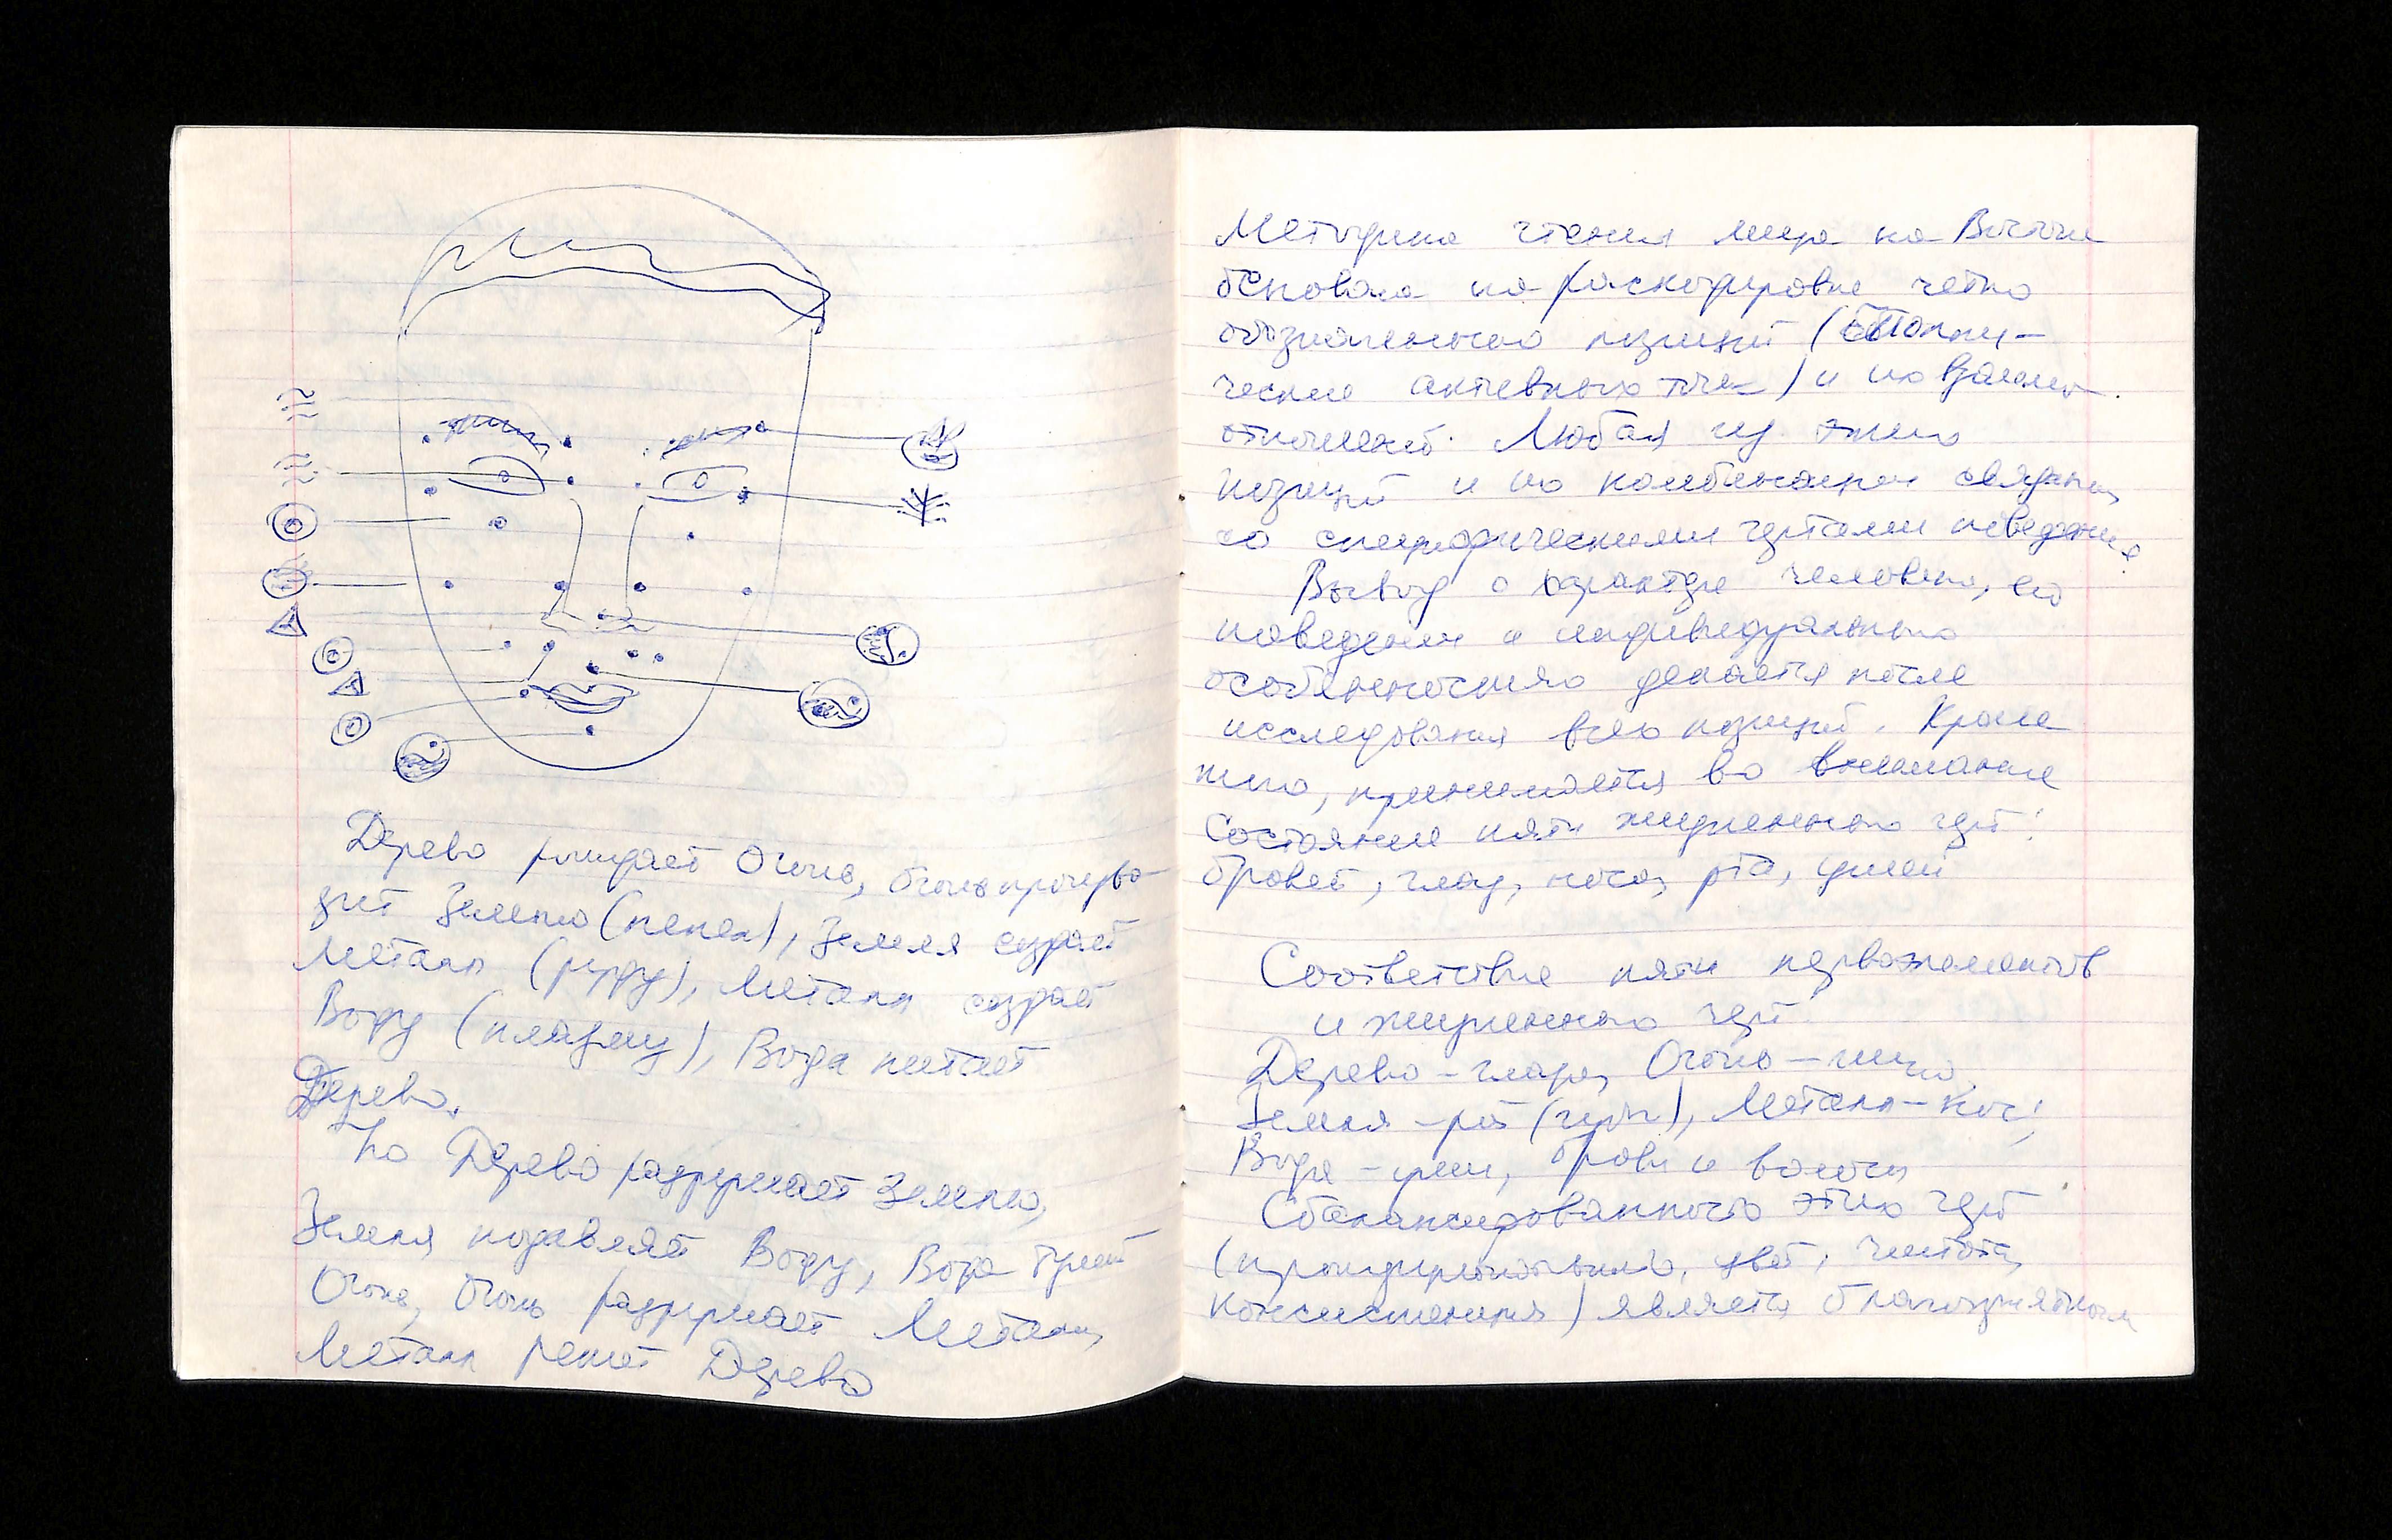 Дерево рождает Огонь, Огонь произво-
дит Землю (пепел), Земля создает
Металл (руду), Металл создает
Воду (плазму), Вода питает
Дерево.
Но Дерево разрушает Землю,
Земля подавляет Воду, Вода
Огонь, Огонь разрушает Металл,
Металл режет Дерево
Методика чтения лица на Востоке
основана на раскодировке четко
обозначенных позиций (
активных точек) и их взаимо-
отношений. Любая из этих
позиций и их комбинации связаны
со специфическими чертами поведения.
Вывод о характере человека, его
поведении и индивидуальных
особенностях делается после
исследования всех позиций. Кроме
того, принимается во внимание
состояние пяти жизненных черт:
бровей, глаз, носа, рта, ушей
Соответствие пяти первоэлементов
и жизненных черт:
Дерево - глаза, Огонь - лицо,
Земля - рот (губы), Металл - нос,
Вода - уши, брови и волосы
Сбалансированность этих черт
(пропорциональность, цвет, чистота,
консистенция) является благоприятным